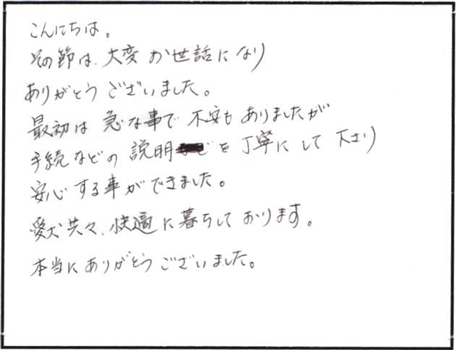 こんにちは。
その節は、大変お世話になり
ありがとうございました。
最初は急な事で不安もありましたが
手続などの説明を丁寧にして下さり
安心する事ができました。
愛犬共々、快適に暮らしております。
本当にありがとうございました。